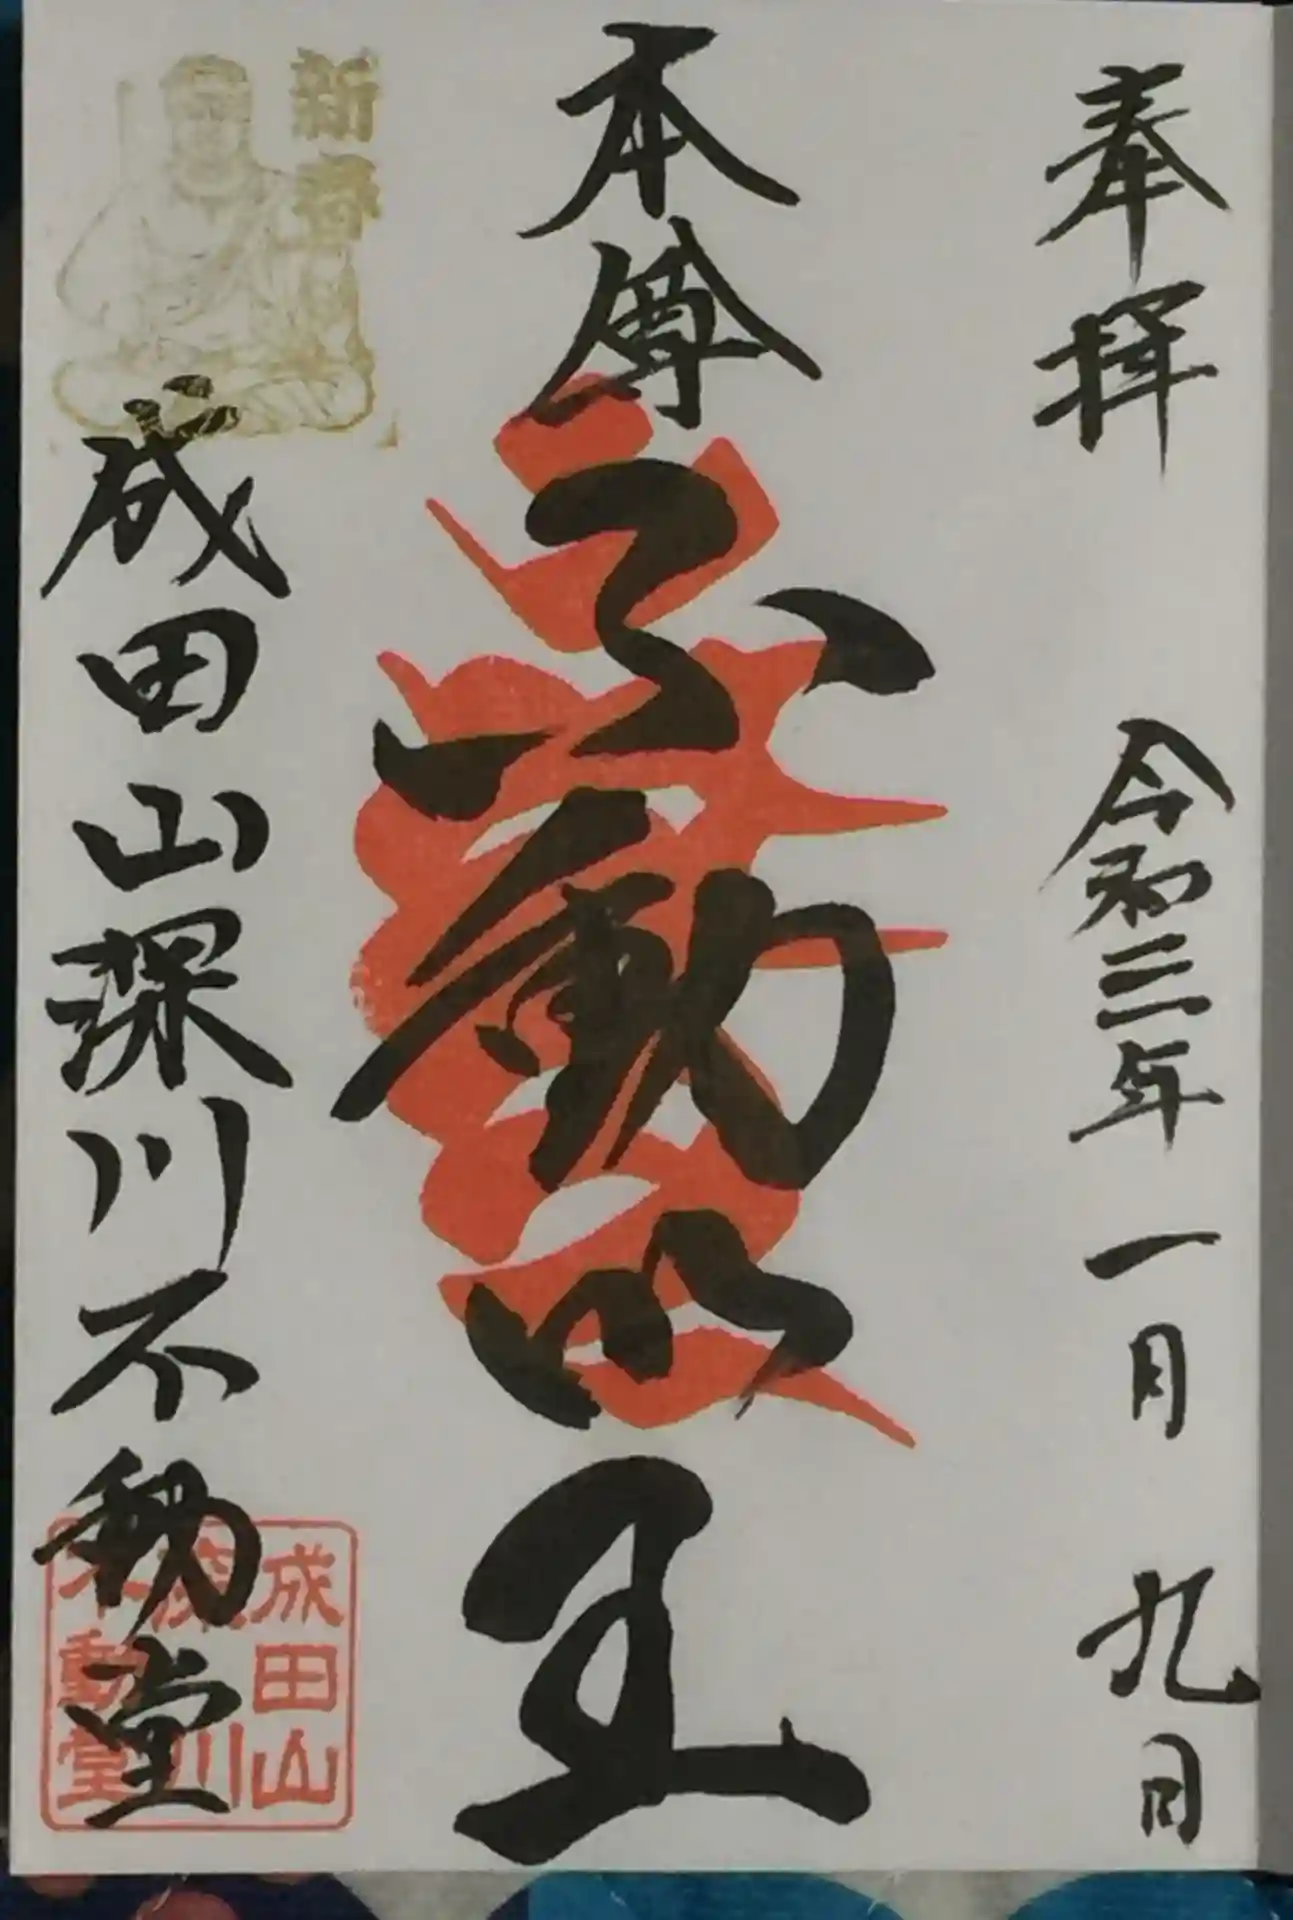 奉拝
令和三年一月九日
本尊
不動明王
新春
成田山深川不動堂
成田山
深川
不動堂